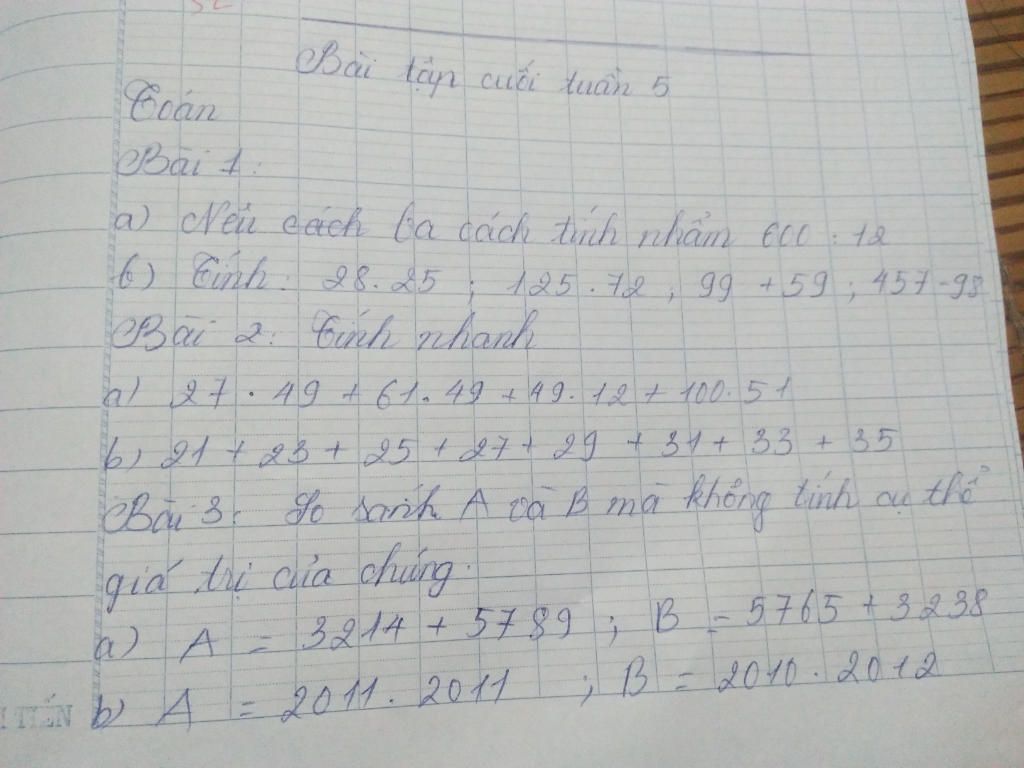 Bài tập cuối tuần 5
Toán
Bài 1:
a) Nêu cách ba cách tính nhẩm 600 : 12
b) Tính: 28.25 ; 125.72 ; 99 + 59 ; 457-98
Bài 2: Tính nhanh
a) 27 . 49 + 61. 49 + 49. 12 + 100. 51
b) 21 + 23 + 25 + 27 + 29 + 31 + 33 + 35
Bài 3: So sánh A và B mà không tính cụ thể
giá trị của chúng.
a) A = 3214 + 5789 ; B = 5765 + 3238
b) A = 2011. 2011 ; B = 2010. 2012
TIẾN